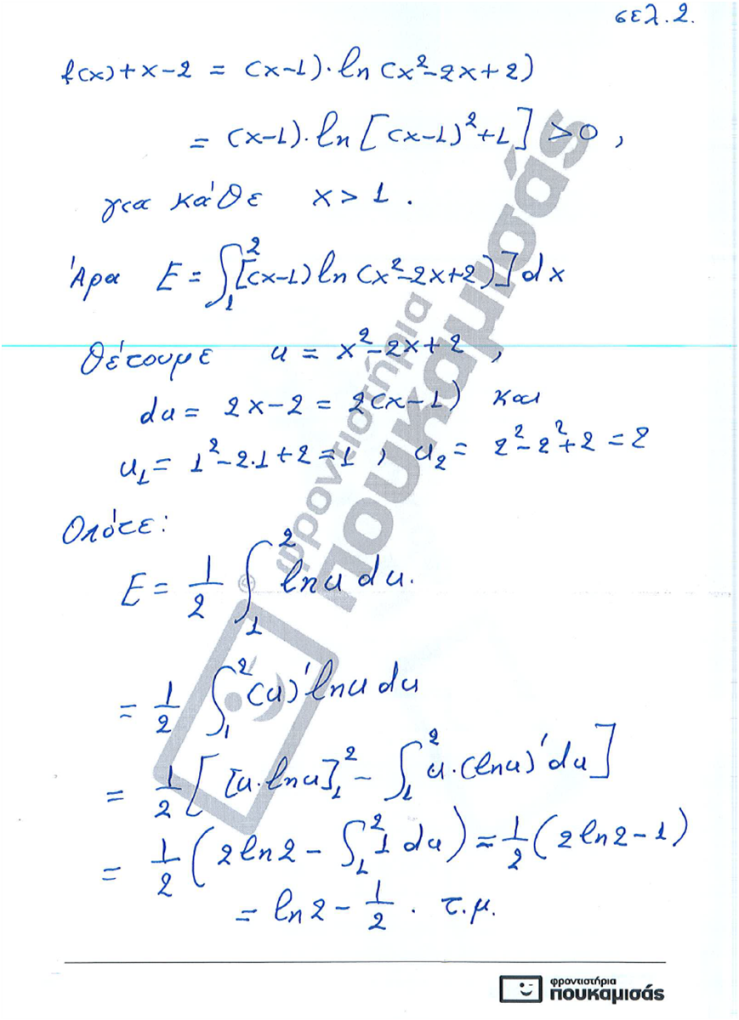 σελ. 2.
f(x)+x-2 = (x-1)·ln(x²-2x+2)
= (x-1)·ln[(x-1)²+1] >0,
για κάθε x>1.
Άρα E = ∫₁² [(x-1)ln(x²-2x+2)]dx
Θέτουμε u = x²-2x+2,
du = 2x-2 = 2(x-1) και
u₁ = 1²-2·1+2=1, u₂ = 2²-2²+2=2
Οπότε:
E = 1/2 ∫₁² lnu du.
= 1/2 ∫₁² (u)'lnu du
= 1/2 [[u·lnu]₁² - ∫₁² u·(lnu)'du]
= 1/2 (2ln2 - ∫₁² 1 du) = 1/2 (2ln2-1)
= ln2 - 1/2 . τ.μ.
© φροντιστήρια
πουκαμισάς
φροντιστήρια
πουκαμισάς